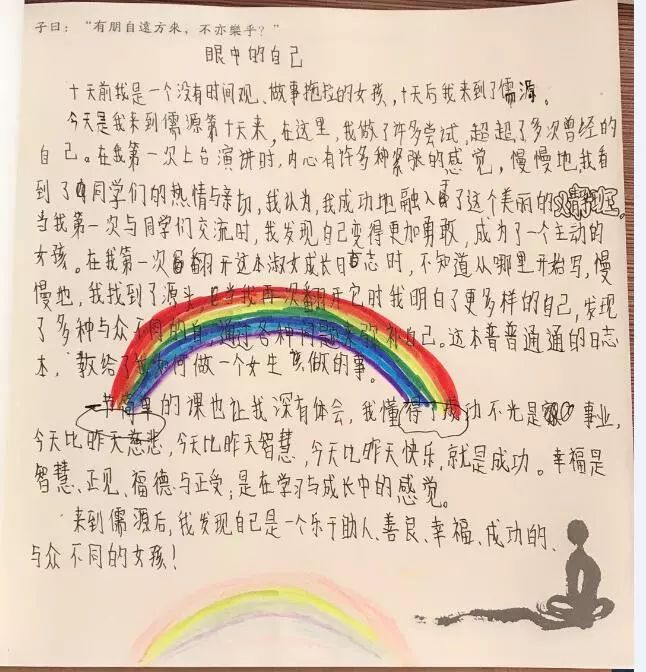 子曰：“有朋自遠方來，不亦樂乎？”
眼中的自己
十天前我是一个没有时间观、做事拖拉的女孩，十天后我来到了儒源。
今天是我来到儒源第十天来，在这里，我做了许多尝试，超超了多次曾经的
自己。在我第一次上台演讲时，内心有许多种紧张的感觉，慢慢地，我看
到了同学们的热情与亲切，我认为，我成功地融入了这个美丽的班。
当我第一次与同学们交流时，我发现自己变得更加勇敢，成为了一个主动的
女孩。在我第一次翻开这本淑女成长日志时，不知道从哪里开始写，慢
慢地，我找到了源头。当我再次翻开它时我明白了更多样的自己，发现
了多种与众不同的自，通过各种问题来弥补自己。这本普普通通的日志
本，教给了我如何做一个女生该做的事。
一节节的课也让我深有体会，我懂得了成功不光是事业，
今天比昨天慈悲，今天比昨天智慧，今天比昨天快乐，就是成功。幸福是
智慧、正见、福德与正受，是在学习与成长中的感觉。
来到儒源后，我发现自己是一个乐于助人、善良、幸福、成功的、
与众不同的女孩！